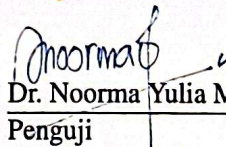 Noorma
Dr. Noorma Yulia M
Penguji